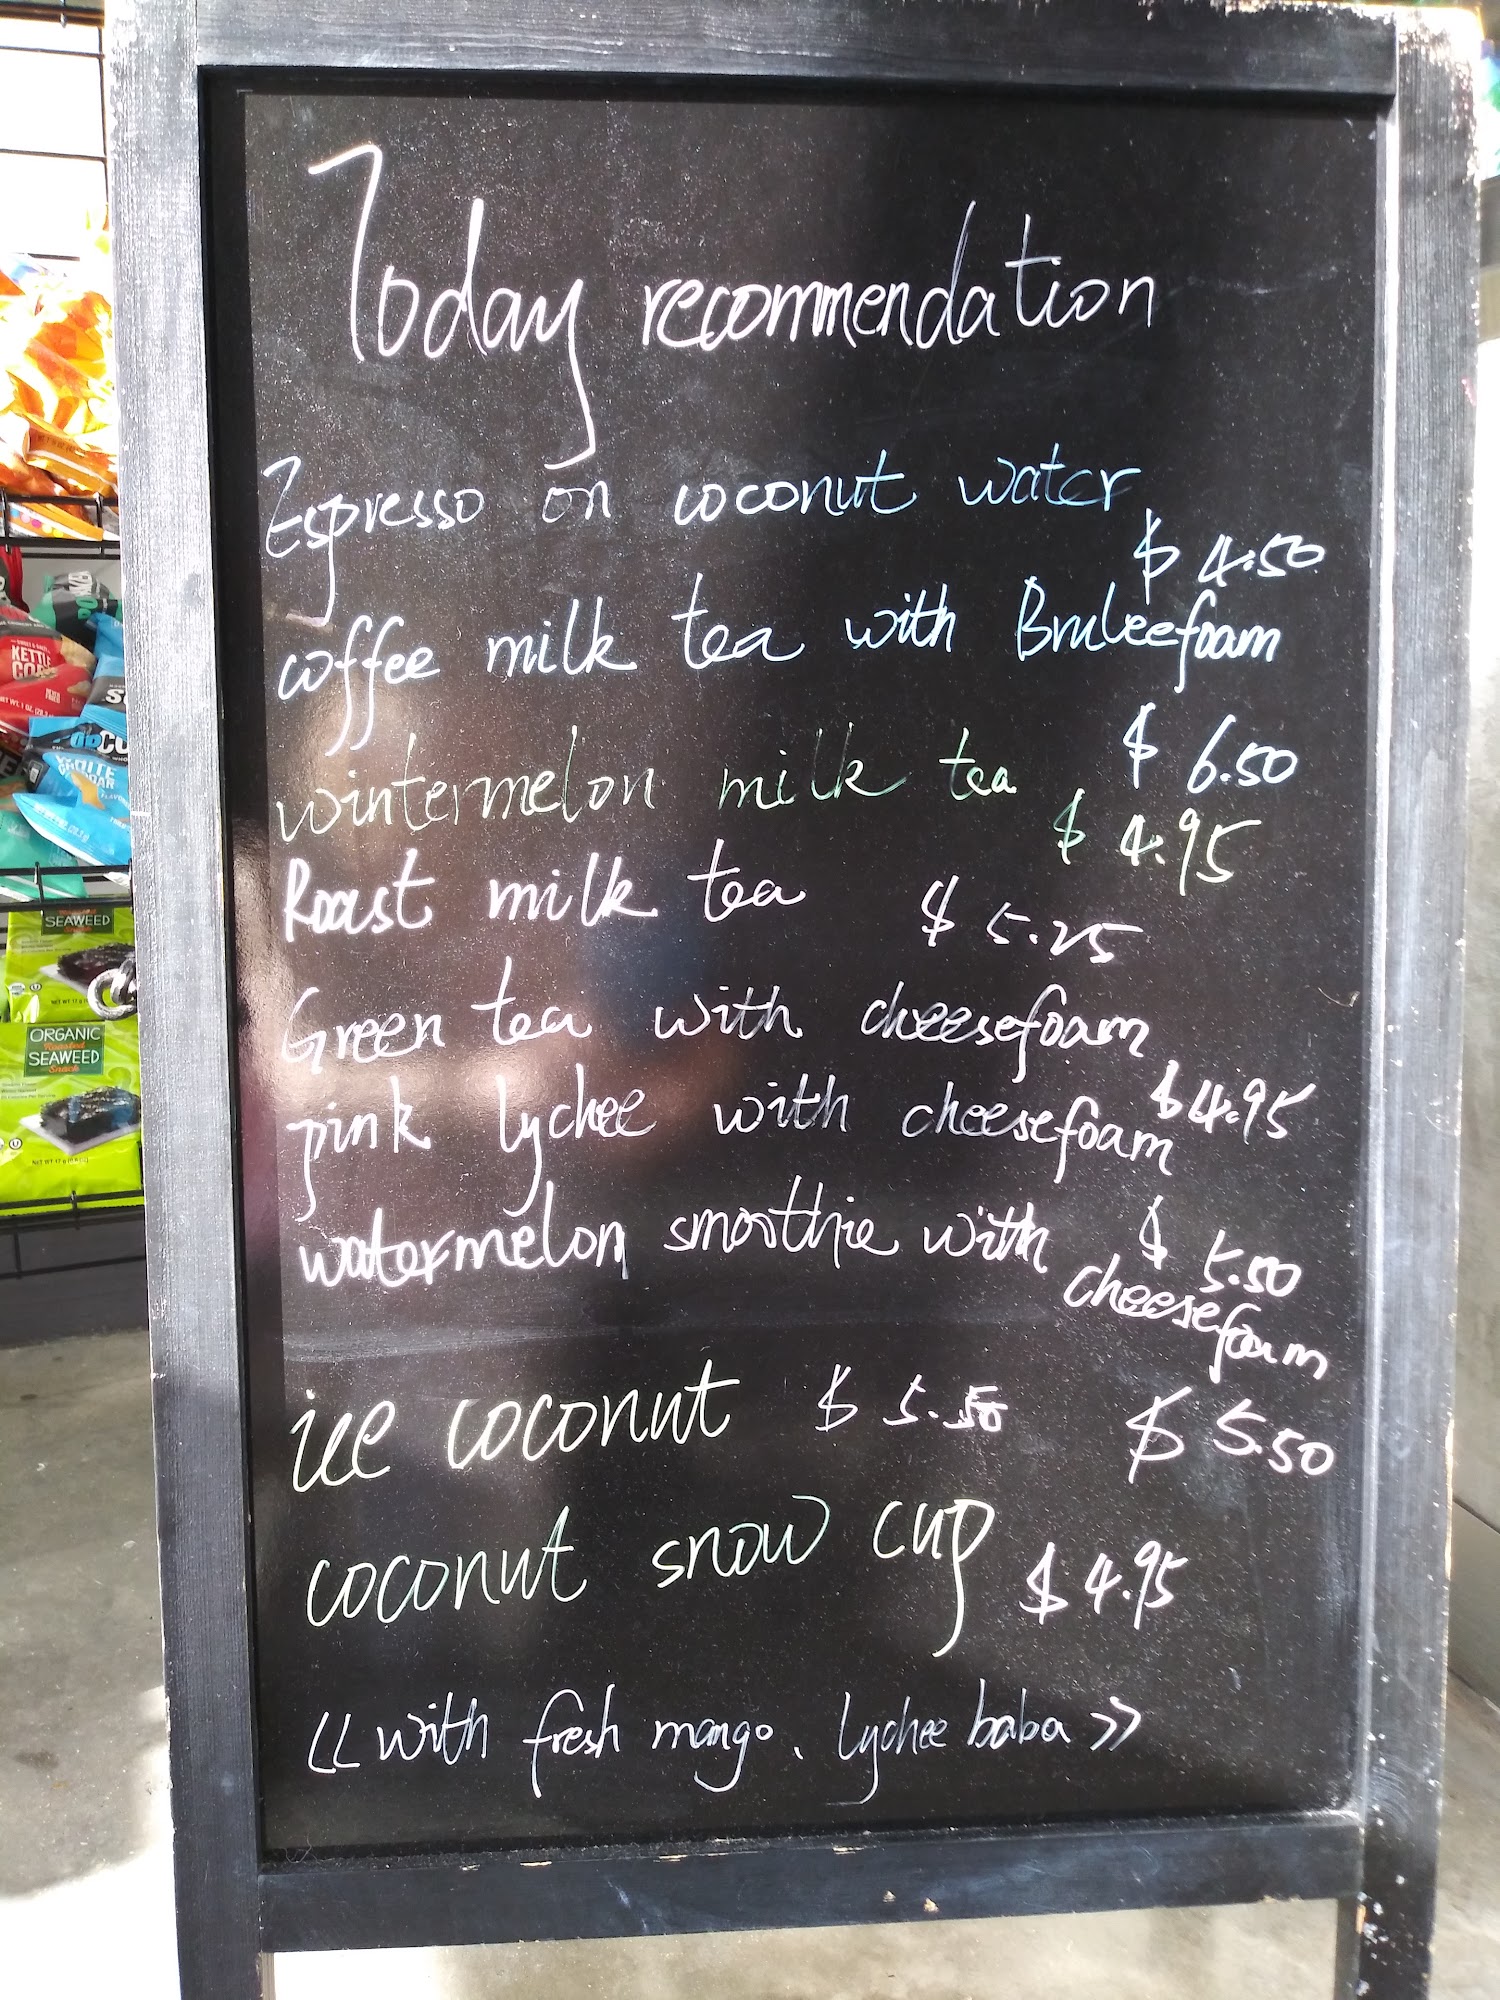 Today recommendation
Espresso on coconut water
$ 4.50
coffee milk tea with Bruleefoam
$ 6.50
wintermelon milk tea
$ 4.95
Roast milk tea $ 5.25
Green tea with cheesefoam
$4.95
pink lychee with cheesefoam
$ 5.50
watermelon smoothie with
cheesefoam
$ 5.50
ice coconut $ 5.50
coconut snow cup $ 4.95
<<with fresh mango, lychee baba>>
KETTLE
WHITE
ORGANIC
SEAWEED
ORGANIC
Roasted
SEAWEED
Snack